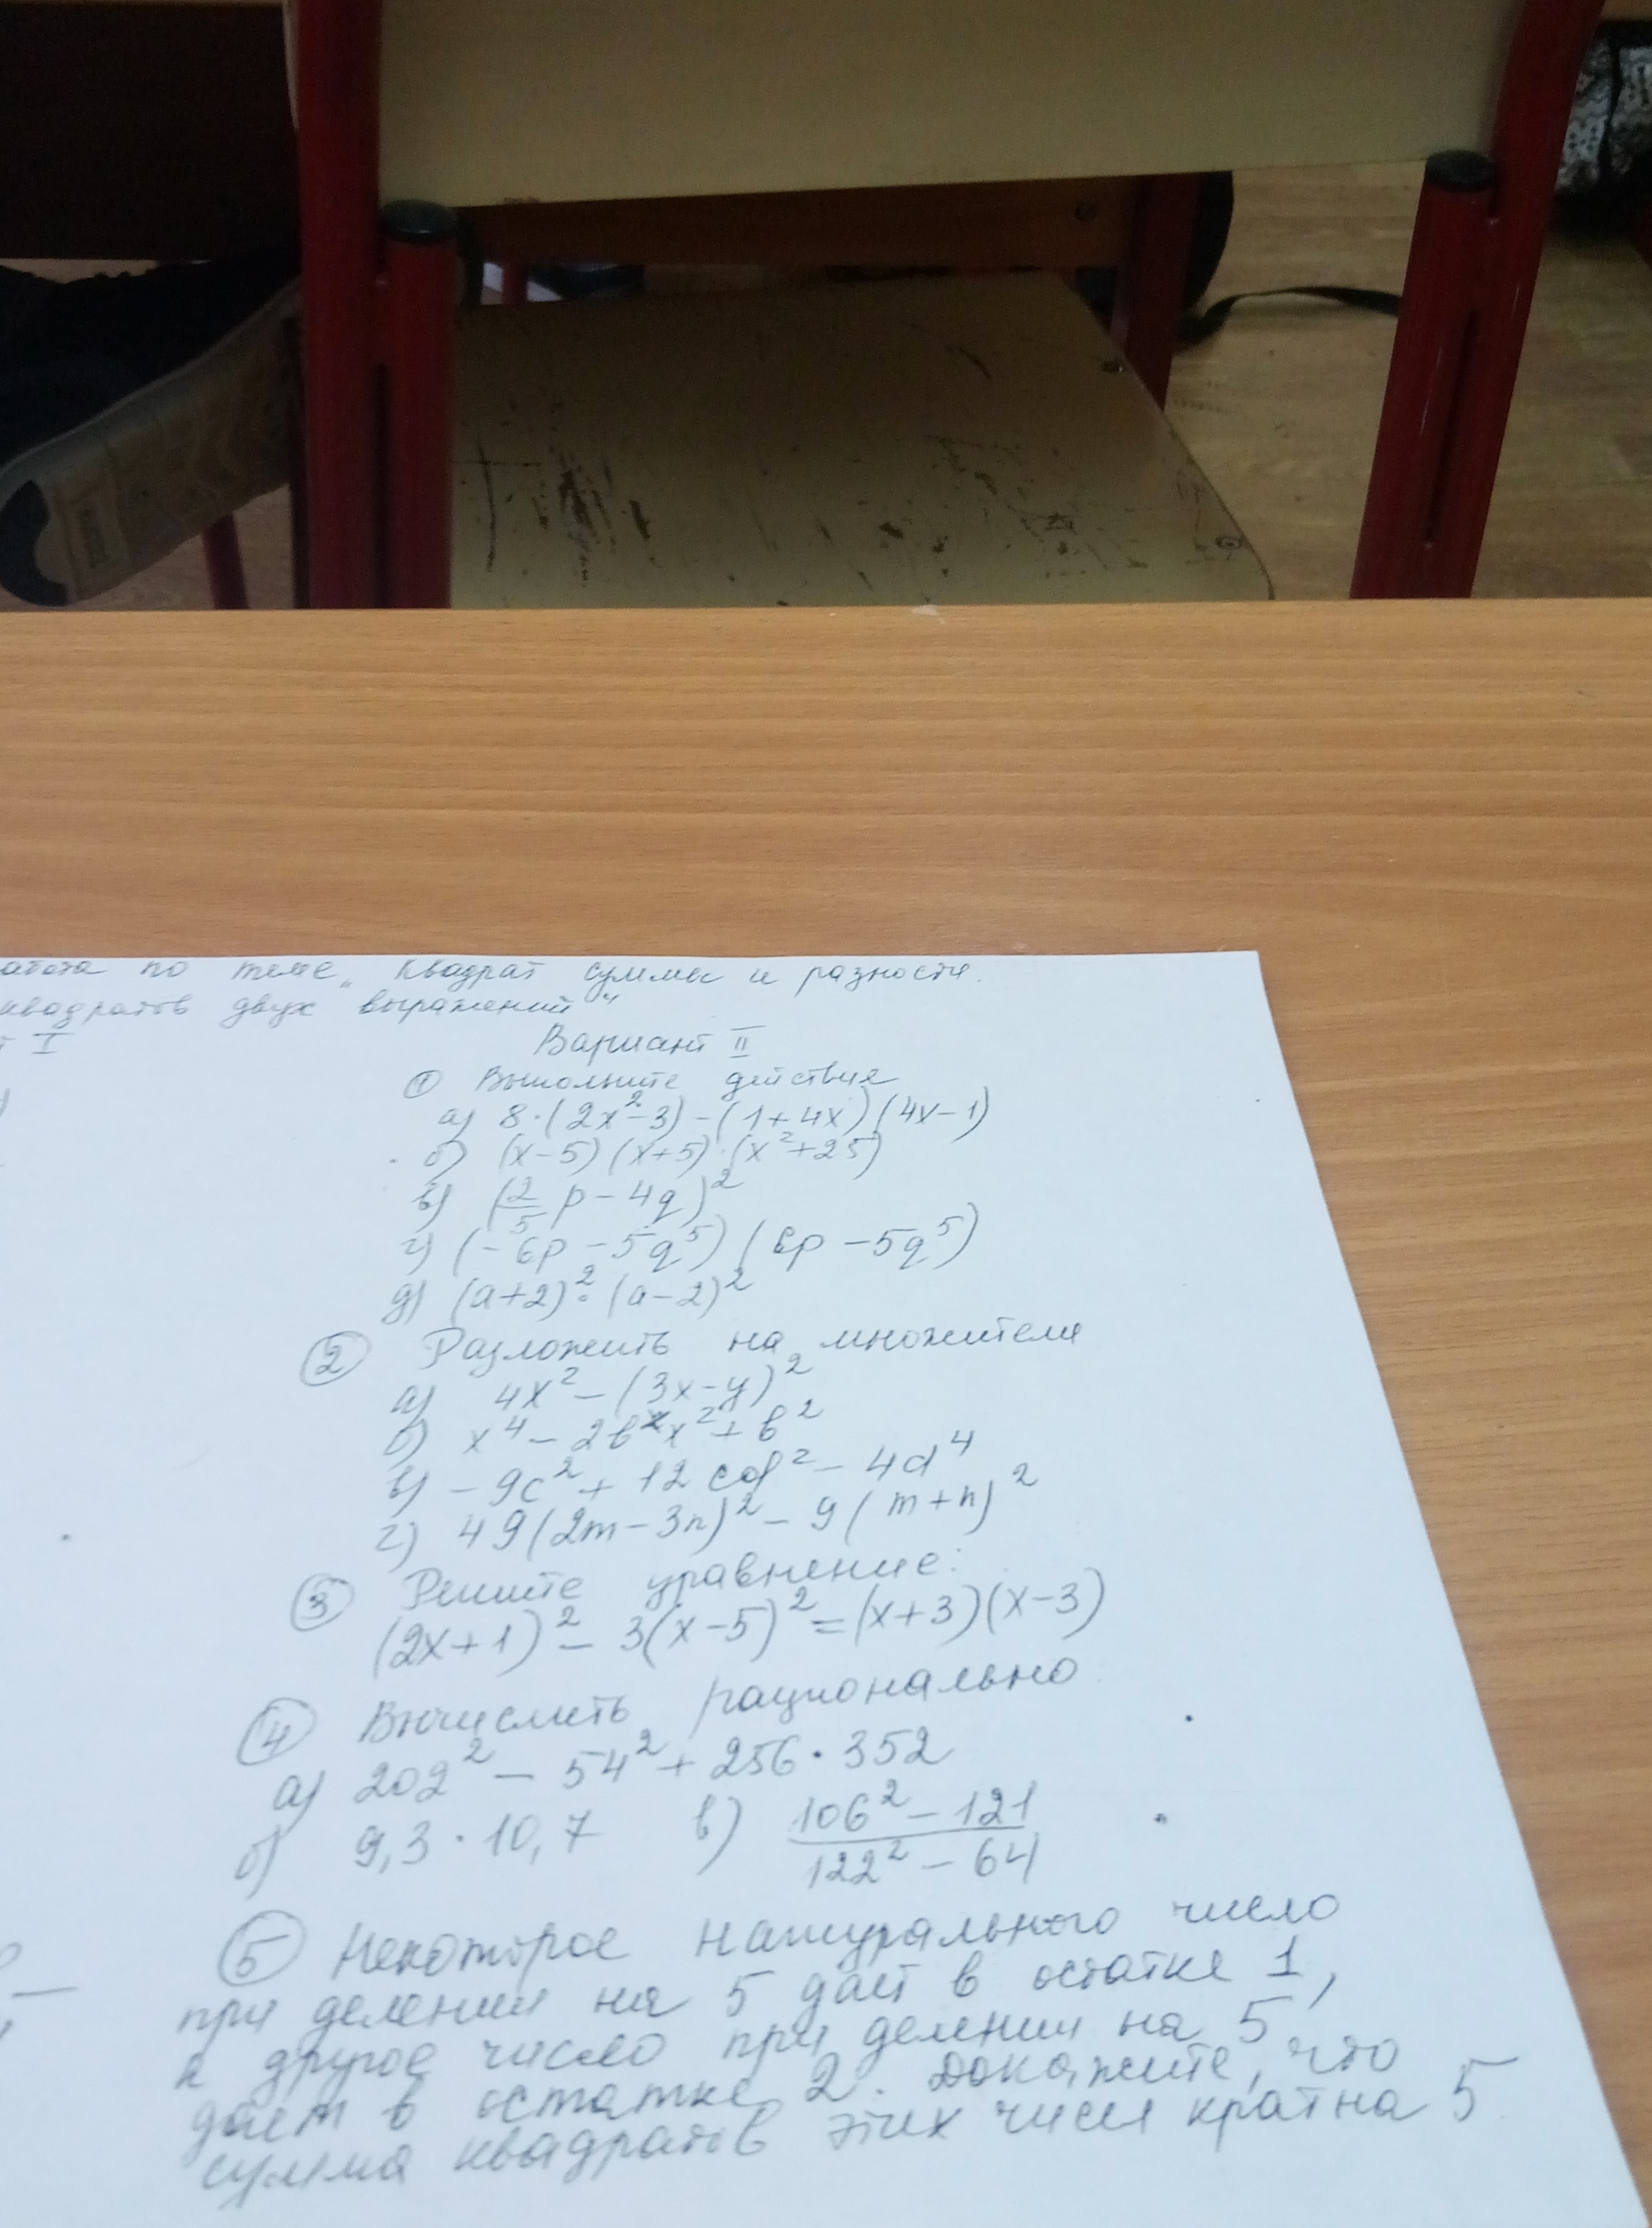 по теме „Квадрат суммы и разности.
квадратов двух выражений“
I
Вариант II
① Выполните действия
а) 8·(2x²-3)-(1+4x)(4x-1)
б) (x-5)(x+5)·(x²+25)
в) (2/5 p-4q)²
г) (-6p-5q⁵)(6p-5q⁵)
д) (a+2)²·(a-2)²
② Разложить на множители
а) 4x²-(3x-y)²
б) x⁴-2bx²+b²
в) -9c²+12cd²-4d⁴
г) 49(2m-3n)²-9(m+n)²
③ Решите уравнение:
(2x+1)²-3(x-5)²=(x+3)(x-3)
④ Вычислить рационально
а) 202²-54²+256·352
б) 9,3·10,7 в) (106²-121)/(122²-64)
⑤ Некоторое натурального число
при делении на 5 дает в остатке 1,
а другое число при делении на 5
дает в остатке 2. Докажите, что
сумма квадратов этих чисел кратна 5